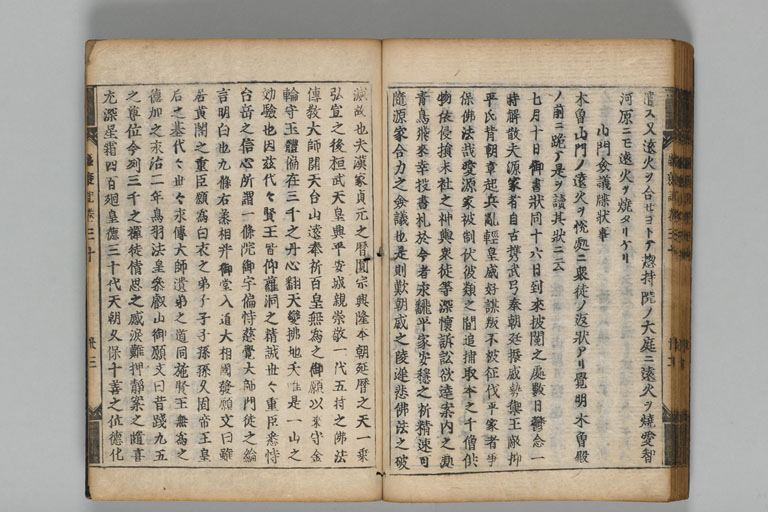 遣ス又遠火ヲ合セヨトテ惣持院ノ大庭ニ遠火ヲ燒愛智
河原ニモ遠火ヲ燒タリケリ
山門僉議牒状事
木曾山門ノ遠火ヲ悦処ニ衆徒ノ返状アリ覺明木曾殿
ノ前ニ跪テ是ヲ讀其状ニ云
七月十日御書状同十六日到來披閲之處數日鬱念一
時解散夫源家者自古携武弓奉朝廷振威勢禦王敵抑
平氏背朝章起兵亂輕皇威好謀叛不被征伐平家者爭
保佛法哉爰源家被制伏彼類之間追捕取本寺千僧供
物依侵損末社之神輿衆徒等深懷訴訟欲達案内之處
青鳥飛來幸投書札於今者永飜平家安穩之祈精速可
隨源家合力之僉議也是則歎朝威之陵遲悲佛法之破
滅故也夫漢家貞元之暦圓宗興隆本朝延暦之天一乘
弘宣之後桓武天皇興平安城親崇敬一代五時之佛法
傳教大師開天台山遠奉祈百皇無爲之御願以來守金
輪守玉體偏在三千之丹心飜天變拂地夭唯是一山之
効驗也因玆代々賢王皆仰蘿洞之精誠世々重臣悉恃
台岳之信心所謂一條院御宇偏恃慈覺大師門徒之綸
言明白也九條右丞相并御堂入道大相國發願文曰雖
若黄閣之重臣願爲白衣之弟子子孫孫久固帝王皇
后之基代々世々永傳大師遺弟之道同施賢王無爲之
德加之永治二年鳥羽法皇參叡山御願文曰昔踐九五
之尊位今列三千之禪徒倩思之感涙難押靜案之隨喜
尤深星霜四百廻皇德三十代天朝久保十善之位德化